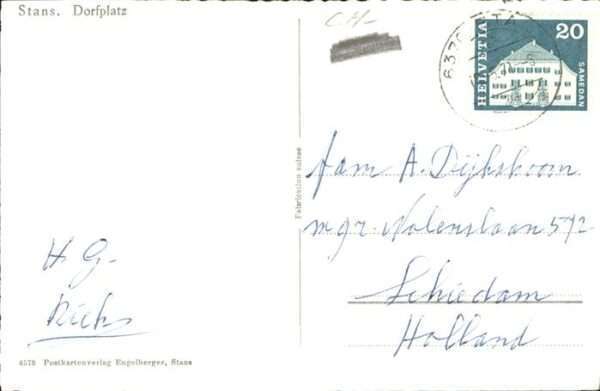 Stans. Dorfplatz
CH-
HELVETIA
20
SAMEDAN
6370
Fabrication suisse
fam A. Dijksboom
mgr. Nolenslaan 572
Schiedam
Holland
H G-
4578 Postkartenverlag Engelberger, Stans